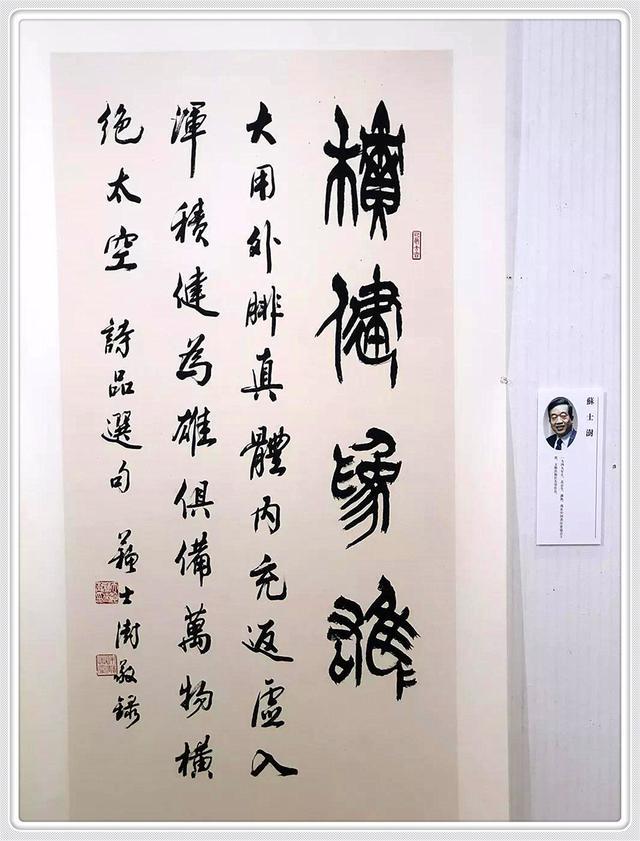 積健為雄
大用外腓真體内充返虛入
渾積健為雄俱備萬物橫
絶太空 詩品選句 蘇士澍敬録
蘇士澍